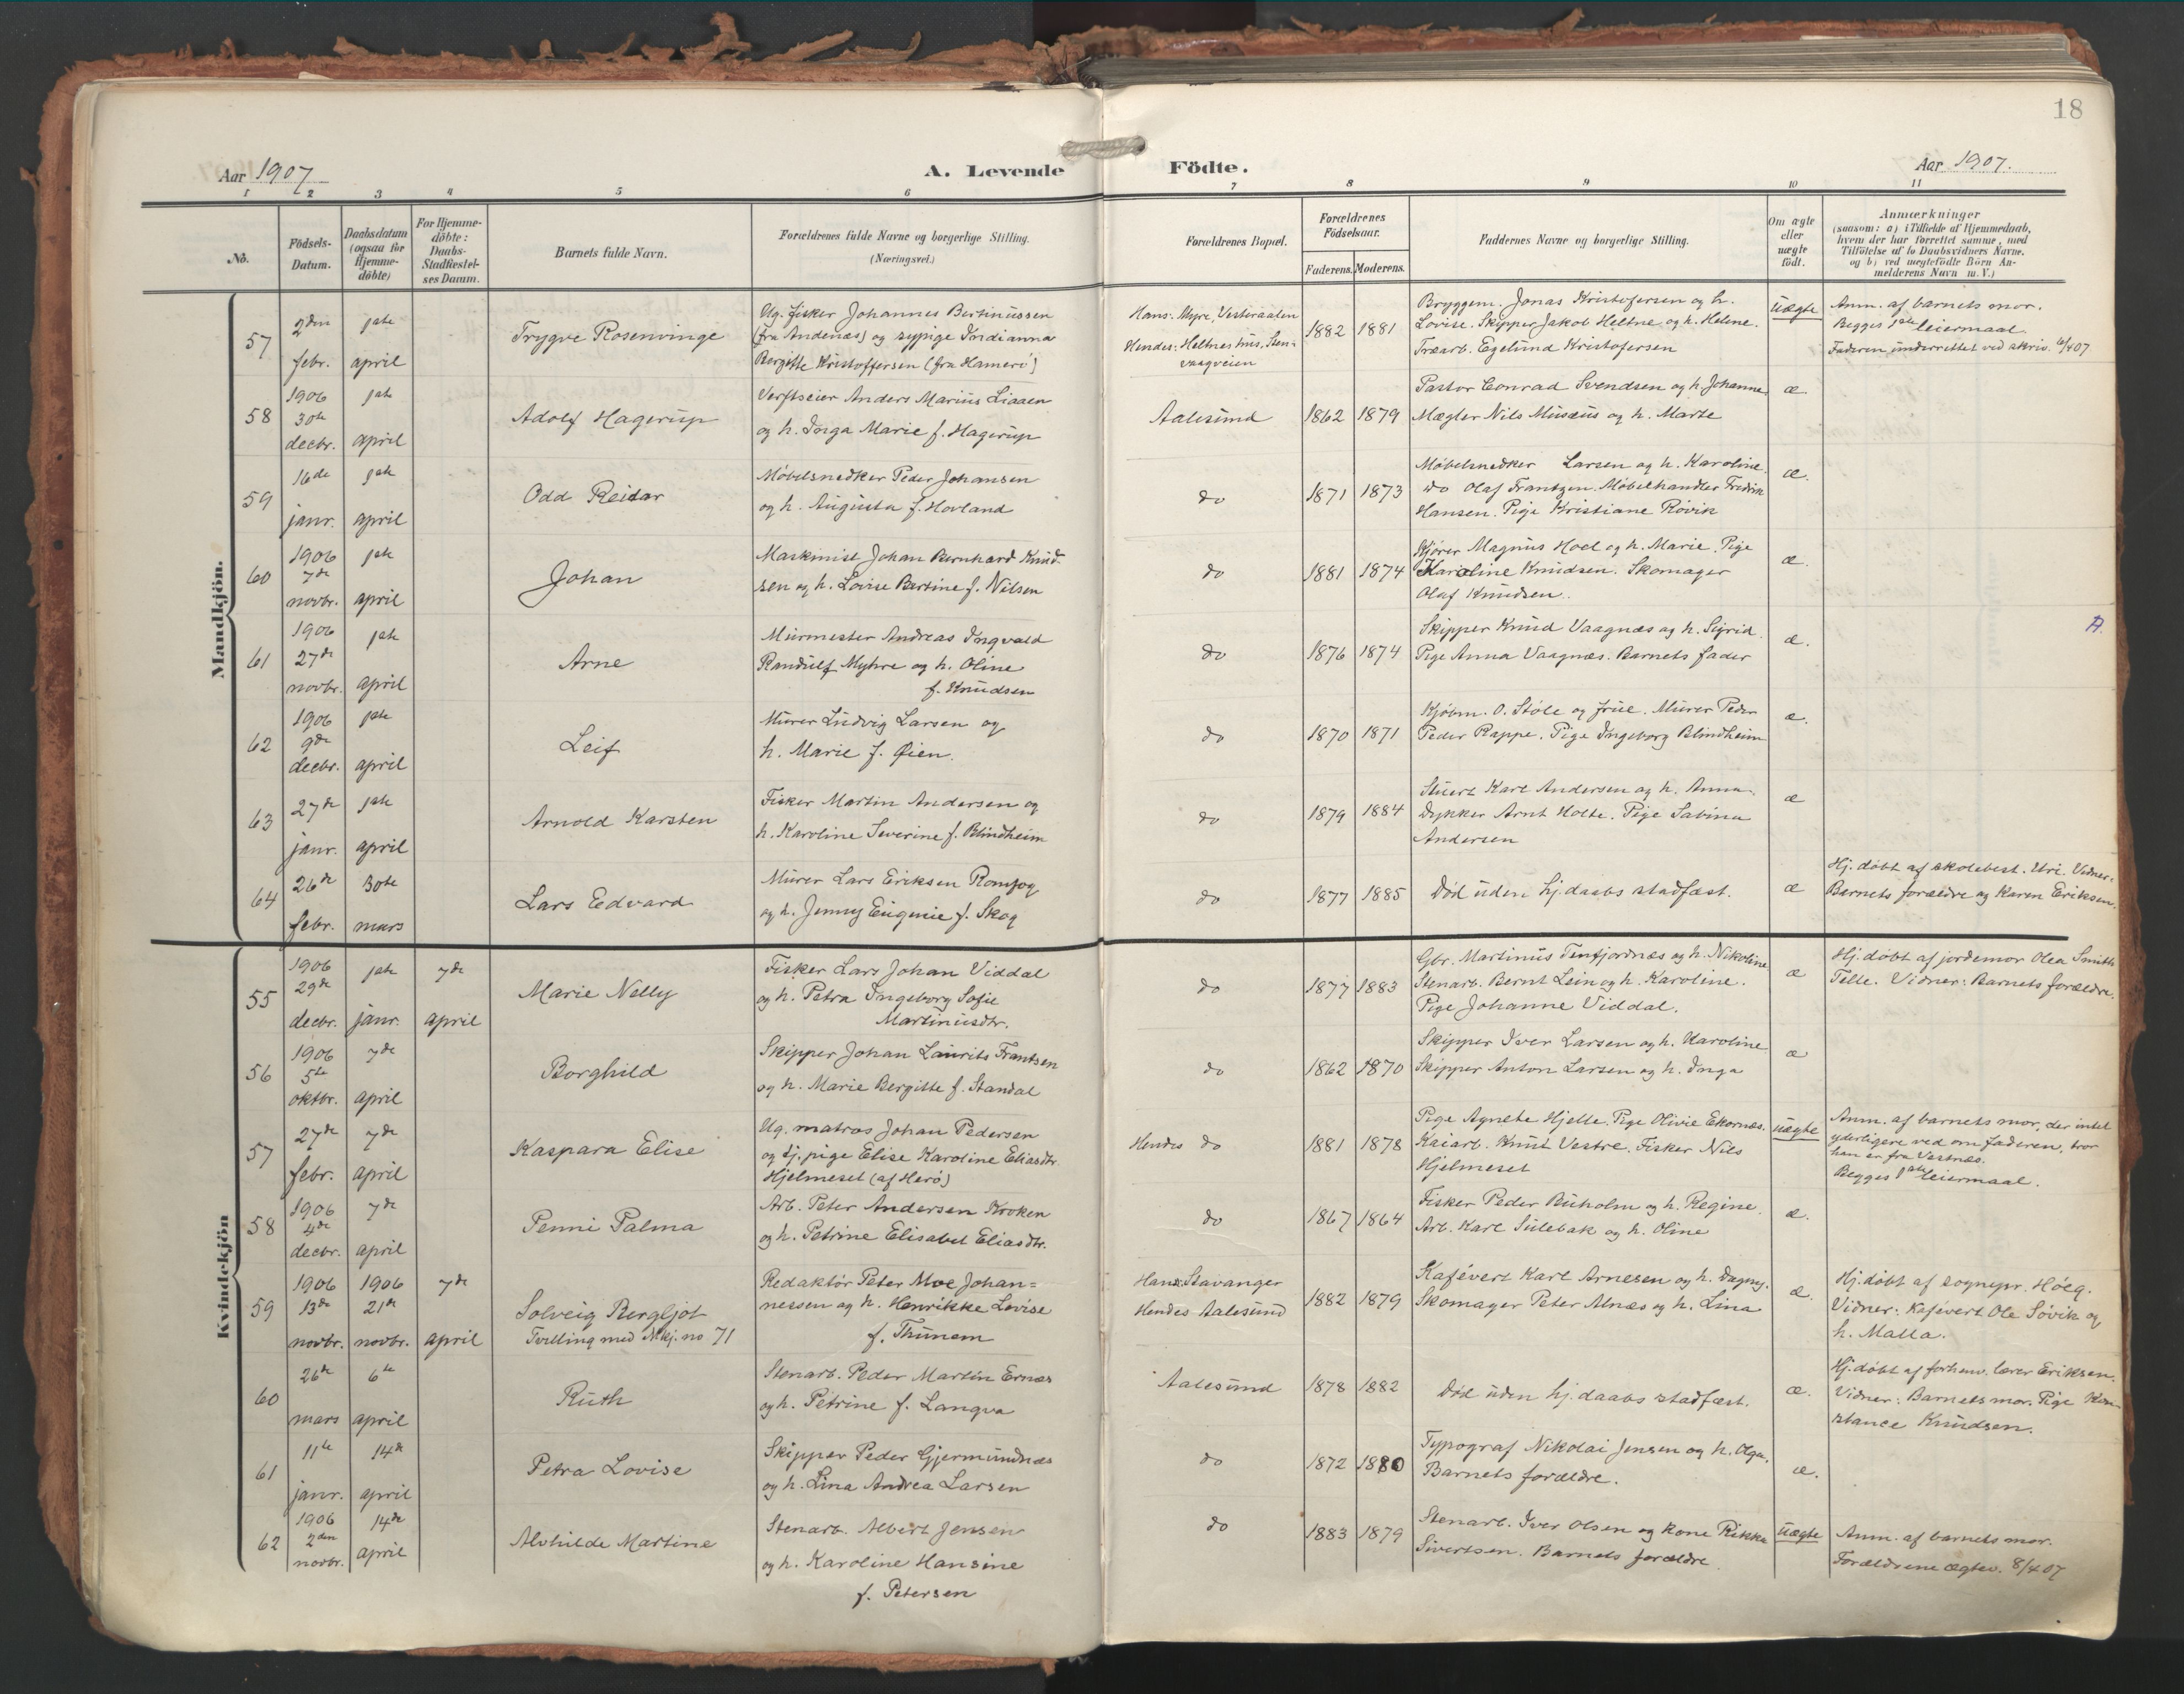 18
Aar 1907
A. Levende Födte.
Aar 1907.
1 2 3 4 5 6 7 8 9 10 11
No.
Födsels-
Datum.
Daabsdatum
(ogsaa for
Hjemme-
döbte)
For Hjemme-
döbte:
Daabs-
Stadfæstel-
ses Datum.
Barnets fulde Navn.
Forældrenes fulde Navne og borgerlige Stilling.
(Næringsvei.)
Forældrenes Bopæl.
Forældrenes
Födselsaar.
Faderens. Moderens.
Faddernes Navne og borgerlige Stilling.
Om ægte
eller
uægte
födt.
Anmærkninger
(saasom: a) i Tilfælde af Hjemmedaab,
hvem der har forrettet samme, med
Tilföielse af to Daabsvidners Navne.
og b) ved uægtefödte Börn An-
melderens Navn m. V.)
Mandkjön.
57
2den
febr.
1ste
april
Trygve Rosenvinge
Ug. fisker Johannes Bertinussen
(fra Andenæs) og sypige Indianna
Bergitte Kristoffersen (fra Hamerö)
Hans: Myre, Vesteraalen
Hendes: Heltnes hus, Sten-
vaagveien
1882 1881
Bryggem. Jonas Kristofersen og h.
Lovise. Skipper Jakob Heltne og h. Helene.
Træarb. Egelund Kristofersen
uægte
Anm. af barnets mor.
Begges 1ste leiermaal
Faderen underrettet ved skriv. 6/4 07
58
1906
30te
decbr.
1ste
april
Adolf Hagerup
Verftseier Anders Marius Liaaen
og h. Inga Marie f. Hagerup
Aalesund
1862 1879
Pastor Conrad Svendsen og h. Johanne
Mægler Nils Musæus og h. Marte
æ.
59
16de
janr.
1ste
april
Odd Reidar
Möbelsnedker Peder Johansen
og h. Augusta f. Hovland
do
1871 1873
Möbelsnedker Larsen og h. Karoline.
do Olaf Frantzen. Möbelhandler Fredrik
Hansen. Pige Kristiane Rövik
æ.
60
1906
7de
novbr.
1ste
april
Johan
Maskinist Johan Bernhard Knud-
sen og h. Lovise Bertine f. Nilsen
do
1881 1874
Kjörer Magnus Hoel og h. Marie. Pige
Karoline Knudsen. Skomager
Olaf Knudsen.
æ.
61
1906
27de
novbr.
1ste
april
Arne
Murmester Andreas Ingvald
Randulf Myhre og h. Oline
f. Knudsen
do
1876 1874
Skipper Knud Vaagnæs og h. Sigrid.
Pige Anna Vaagnæs. Barnets fader
æ.
A.
62
1906
9de
decbr.
1ste
april
Leif
Murer Ludvig Larsen og
h. Marie f. Øien.
do
1870 1871
Kjöbm. O. Stöle og frue. Murer Peder
Peder Rappe. Pige Ingeborg Blindheim
æ.
63
27de
janr.
1ste
april
Arnold Karsten
Fisker Martin Andersen og
h. Karoline Severine f. Blindheim
do
1879 1884
Stuert Karl Andersen og h. Anna.
Dykker Arnt Holte. Pige Sabina
Andersen
æ
64
26de
febr.
30te
mars
Lars Edvard
Murer Lars Eriksen Romfog
og h. Jenny Eugenie f. Skog
do
1877 1885
Död uden hj.daabs stadfæst.
æ
Hj. döbt af skolebest. Uri. Vidner:
Barnets forældre og Karen Eriksen.
Kvindekjön
55
1906
29de
decbr.
1ste
janr.
7de
april
Marie Nelly
Fisker Lars Johan Viddal
og h. Petra Ingeborg Sofie
Martinusdtr.
do
1877 1883
Gbr. Martinus Tenfjordnæs og h. Nikoline.
Stenarb. Bernt Lein og h. Karoline.
Pige Johanne Viddal.
æ
Hj. döbt af jordemor Olea Smith
Telle. Vidner: Barnets forældre.
56
1906
5te
oktbr.
7de
april
Borghild
Skipper Johan Laurits Frantsen
og h. Marie Bergitte f. Standal
do
1862 1870
Skipper Iver Larsen og h. Karoline
Skipper Anton Larsen og h. Inga
æ
57
27de
febr.
7de
april
Kaspara Elise
Ug. matros Johan Pedersen
og tj.pige Elise Karoline Eliasdtr.
Hjelmeset (af Herö)
Hendes do
1881 1878
Pige Agnete Hjelle. Pige Olivie Ekornæs.
Kaiarb. Knut Vestre. Fisker Nils
Hjelmeset
uægte
Anm. af barnets mor, der intet
yderligere ved om faderen, tror
han er fra Vestnæs.
Begges 1ste leiermaal.
58
1906
4de
decbr.
7de
april
Penni Palma
Arb. Peter Andersen Kroken
og h. Petrine Elisabet Eliasdtr.
do
1867 1864
Fisker Peder Buholm og h. Regine.
Arb. Karl Sulebak og h. Oline
æ.
59
1906
13de
novbr.
1906
21de
novbr.
7de
april
Solveig Bergljot
Tvilling med Mkj. no 71
Redaktör Peter Moe Johan=
nessen og h. Henrikke Lovise
f. Thunem
Hans: Stavanger
Hendes Aalesund
1882 1879
Kafévert Karl Arnesen og h. Dagny.
Skomager Peter Alnæs og h. Lina
æ.
Hj. döbt af sognepr. Höeg.
Vidner: Kafévert Ole Sövik og
h. Malla.
60
26de
mars
6te
april
Ruth
Stenarb. Peder Martin Ernæs
og h. Petrine f. Langva
Aalesund
1878 1882
Död uden hj. daabs stadfæst.
æ.
Hj. döbt af forhenv. lærer Eriksen.
Vidner: Barnets mor. Pige Kon-
stance Knudsen.
61
11te
janr.
14de
april
Petra Lovise
Skipper Peder Gjermundnæs
og h. Lina Andrea Larsen
do
1872 1880
Typograf Nikolai Jensen og h. Olga.
Barnets forældre.
æ.
62
1906
2den
novbr.
14de
april
Alvhilde Martine
Stenarb. Albert Jensen
og h. Karoline Hansine
f. Petersen
do
1883 1879
Stenarb. Iver Olsen og kone Rikka
Sivertsen. Barnets forældre
uægte
Anm. af barnets mor.
Forældrene ægtev. 8/4 07